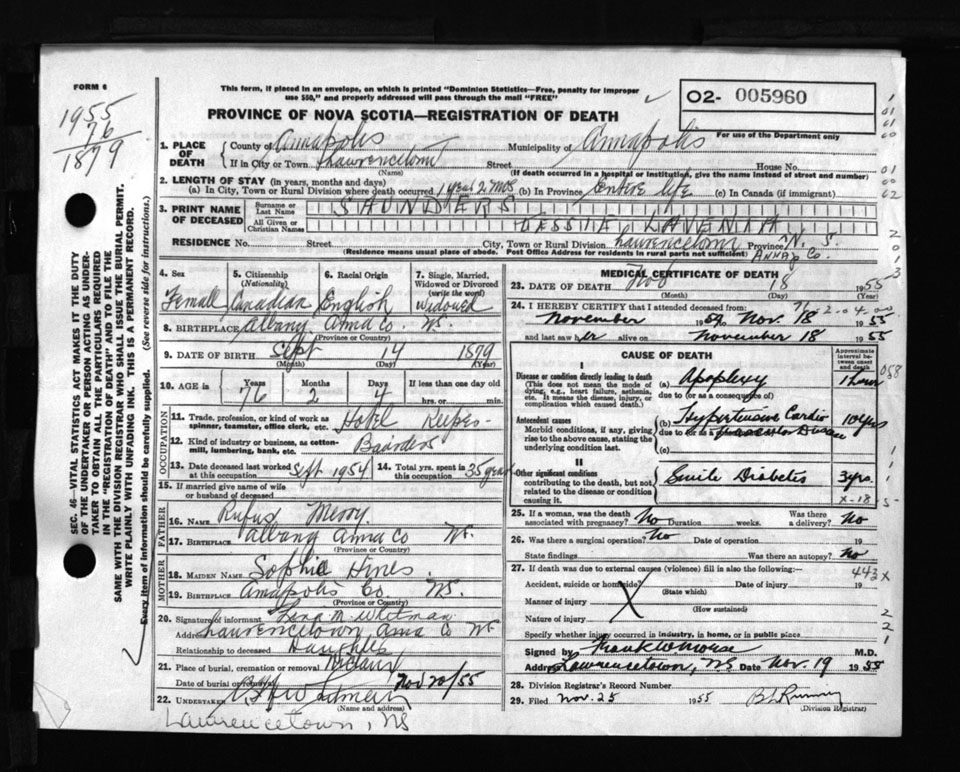 FORM 6
This form, if placed in an envelope, on which is printed "Dominion Statistics—Free, penalty for improper
use $50," and properly addressed will pass through the mail "FREE"
02- 005960
For use of the Department only
1955
76
1879
PROVINCE OF NOVA SCOTIA—REGISTRATION OF DEATH
1. PLACE OF DEATH
County of Annapolis Municipality of Annapolis
If in City or Town Lawrencetown Street House No.
(Name) (If death occurred in a hospital or institution, give the name instead of street and number)
2. LENGTH OF STAY (in years, months and days)
(a) In City, Town or Rural Division where death occurred 1 year 2 mos (b) In Province Entire life (c) In Canada (if immigrant)
3. PRINT NAME OF DECEASED
Surname or Last Name SAUNDERS
All Given or Christian Names JESSIE LAVENIA
RESIDENCE No. Street City, Town or Rural Division Lawrencetown Province N. S.
(Residence means usual place of abode. Post Office Address for residents in rural parts not sufficient) Annap Co.
SEC. 46—VITAL STATISTICS ACT MAKES IT THE DUTY
OF THE UNDERTAKER OR PERSON ACTING AS UNDER-
TAKER TO OBTAIN ALL THE PARTICULARS REQUIRED
IN THE "REGISTRATION OF DEATH" AND TO FILE THE
SAME WITH THE DIVISION REGISTRAR WHO SHALL ISSUE THE BURIAL PERMIT.
WRITE PLAINLY WITH UNFADING INK. THIS IS A PERMANENT RECORD.
Every item of information should be carefully supplied. (See reverse side for instructions.)
4. Sex Female
5. Citizenship (Nationality) Canadian
6. Racial Origin English
7. Single, Married, Widowed or Divorced (write the word) Widowed
8. BIRTHPLACE Albany Anna Co. NS.
(Province or Country)
9. DATE OF BIRTH Sept 14 1879
(Month) (Day) (Year)
10. AGE in Years 76 Months 2 Days 4 If less than one day old
hrs. or min.
OCCUPATION
11. Trade, profession, or kind of work as spinner, teamster, office clerk, etc. Hotel Keeper
12. Kind of industry or business, as cotton-mill, lumbering, bank, etc. Boarders
13. Date deceased last worked at this occupation Sept 1954
14. Total yrs. spent in this occupation 35 years
15. If married give name of wife or husband of deceased
FATHER
16. NAME Rufus Merry
17. BIRTHPLACE Albany Anna Co NS.
(Province or Country)
MOTHER
18. MAIDEN NAME Sophia Hines
19. BIRTHPLACE Annapolis Co. NS.
(Province or Country)
20. Signature of informant Lena M. Whitman
Address Lawrencetown Anna Co NS
Relationship to deceased Daughter
21. Place of burial, cremation or removal
Date of burial or removal Nov 20/55
22. UNDERTAKER
(Name and address)
Lawrencetown, NS
MEDICAL CERTIFICATE OF DEATH
23. DATE OF DEATH Nov 18 1955
(Month) (Day) (Year)
24. I HEREBY CERTIFY that I attended deceased from
November 1954 Nov. 18 1955
and last saw her alive on November 18 1955
CAUSE OF DEATH
Approximate interval between onset and death
I
Disease or condition directly leading to death
(This does not mean the mode of dying, e.g., heart failure, asthenia, etc. It means the disease, injury, or complication which caused death.)
(a) Apoplexy 1 hour 058
due to (or as a consequences of)
Antecedent causes
Morbid conditions, if any, giving rise to the above cause, stating the underlying condition last.
(b) Hypertensive Cardio vascular Disease 10 yrs
due to (or as a consequence of)
(c)
II
Other significant conditions
contributing to the death, but not related to the disease or condition causing it.
Senile Diabetes 3 yrs.
X-18
25. If a woman, was the death associated with pregnancy? No Duration weeks. Was there a delivery? No
26. Was there a surgical operation? No Date of operation 19
State findings Was there an autopsy? No
27. If death was due to external causes (violence) fill in also the following:— 443 X
Accident, suicide or homicide? Date of injury 19
(State which)
Manner of injury
(How sustained)
Nature of injury
Specify whether injury occurred in industry, in home, or in public place
Signed by Frank W. Morse M.D.
Address Lawrencetown, NS Date Nov. 19 1955
28. Division Registrar's Record Number
29. Filed Nov. 25 1955
(Division Registrar)